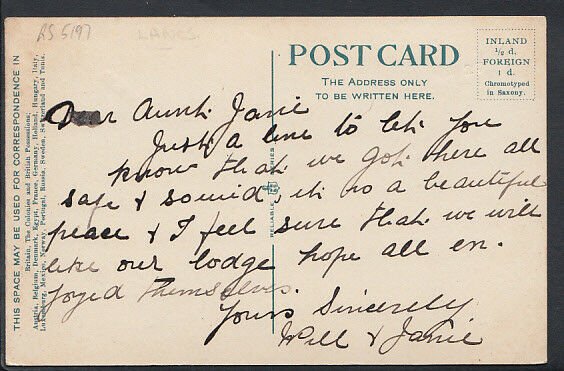 RS 5197
LANCS.
POST CARD
THE ADDRESS ONLY
TO BE WRITTEN HERE.
INLAND
½ d.
FOREIGN
1 d.
Chromotyped
in Saxony.
THIS SPACE MAY BE USED FOR CORRESPONDENCE IN
Britain, The Colonies and British Possessions;
Austria, Belgium, Denmark, Egypt, France, Germany, Holland, Hungary, Italy,
Luxemburg, Mexico, Norway, Portugal, Russia, Sweden, Switzerland and Tunis.
RELIABLE SERIES
Dear Aunt Janie
Just a line to let you
know that we got here all
safe & sound, it is a beautiful
peace & I feel sure that we will
like our lodge hope all en-
joyed themselves.
Yours Sincerely
Will & Janie